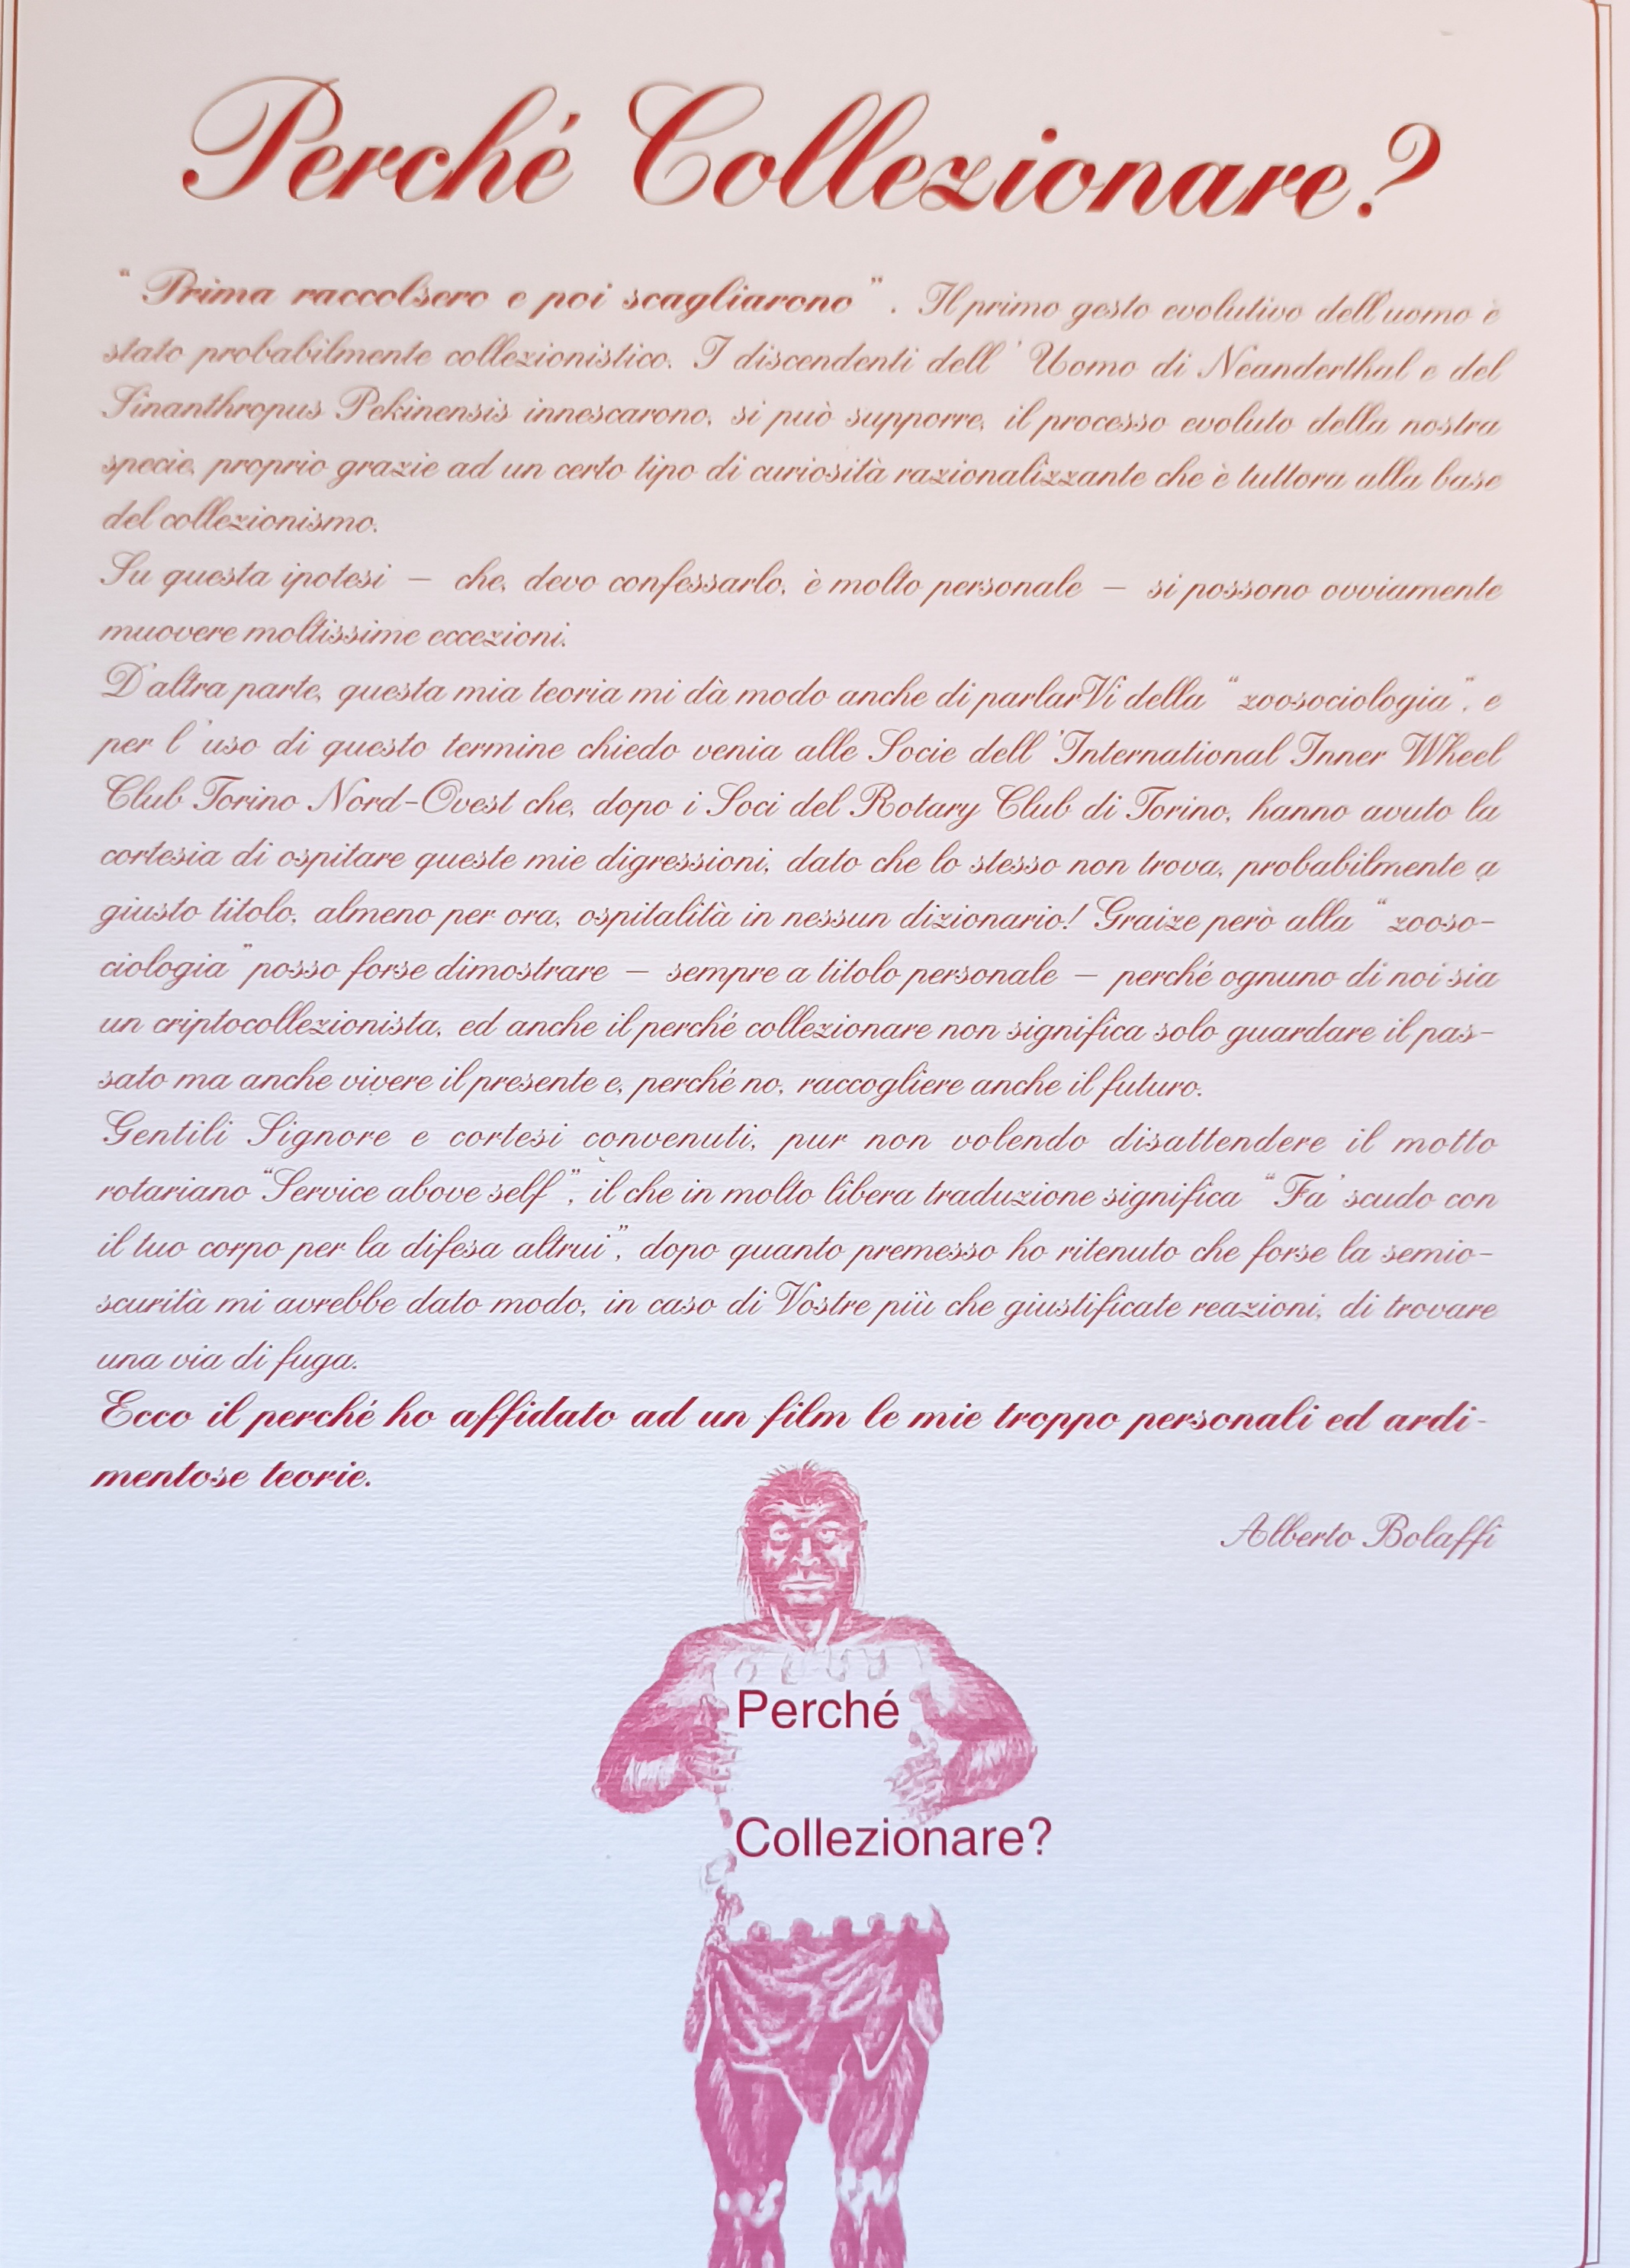 Perché Collezionare?
“Prima raccolsero e poi scagliarono”. Il primo gesto evolutivo dell'uomo è
stato probabilmente collezionistico. I discendenti dell'Uomo di Neanderthal e del
Sinanthropus Pekinensis innescarono, si può supporre, il processo evoluto della nostra
specie, proprio grazie ad un certo tipo di curiosità razionalizzante che è tuttora alla base
del collezionismo.
Su questa ipotesi – che, devo confessarlo, è molto personale – si possono ovviamente
muovere moltissime eccezioni.
D'altra parte, questa mia teoria mi dà modo anche di parlarVi della “zoosociologia”, e
per l'uso di questo termine chiedo venia alle Socie dell'International Inner Wheel
Club Torino Nord-Ovest che, dopo i Soci del Rotary Club di Torino, hanno avuto la
cortesia di ospitare queste mie digressioni, dato che lo stesso non trova, probabilmente a
giusto titolo, almeno per ora, ospitalità in nessun dizionario! Graize però alla “zooso-
ciologia” posso forse dimostrare – sempre a titolo personale – perché ognuno di noi sia
un criptocollezionista, ed anche il perché collezionare non significa solo guardare il pas-
sato ma anche vivere il presente e, perché no, raccogliere anche il futuro.
Gentili Signore e cortesi convenuti, pur non volendo disattendere il motto
rotariano “Service above self”, il che in molto libera traduzione significa “Fa' scudo con
il tuo corpo per la difesa altrui”, dopo quanto premesso ho ritenuto che forse la semio-
scurità mi avrebbe dato modo, in caso di Vostre più che giustificate reazioni, di trovare
una via di fuga.
Ecco il perché ho affidato ad un film le mie troppo personali ed ardi-
mentose teorie.
Alberto Bolaffi
Perché
Collezionare?